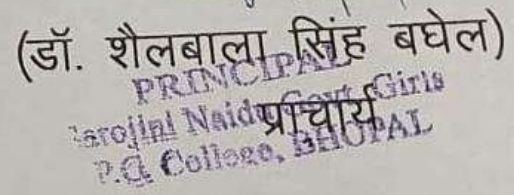 (डॉ. शैलबाला सिंह बघेल)
PRINCIPAL
प्राचार्य
Sarojini Naidu Govt. Girls
P.G. College, BHOPAL